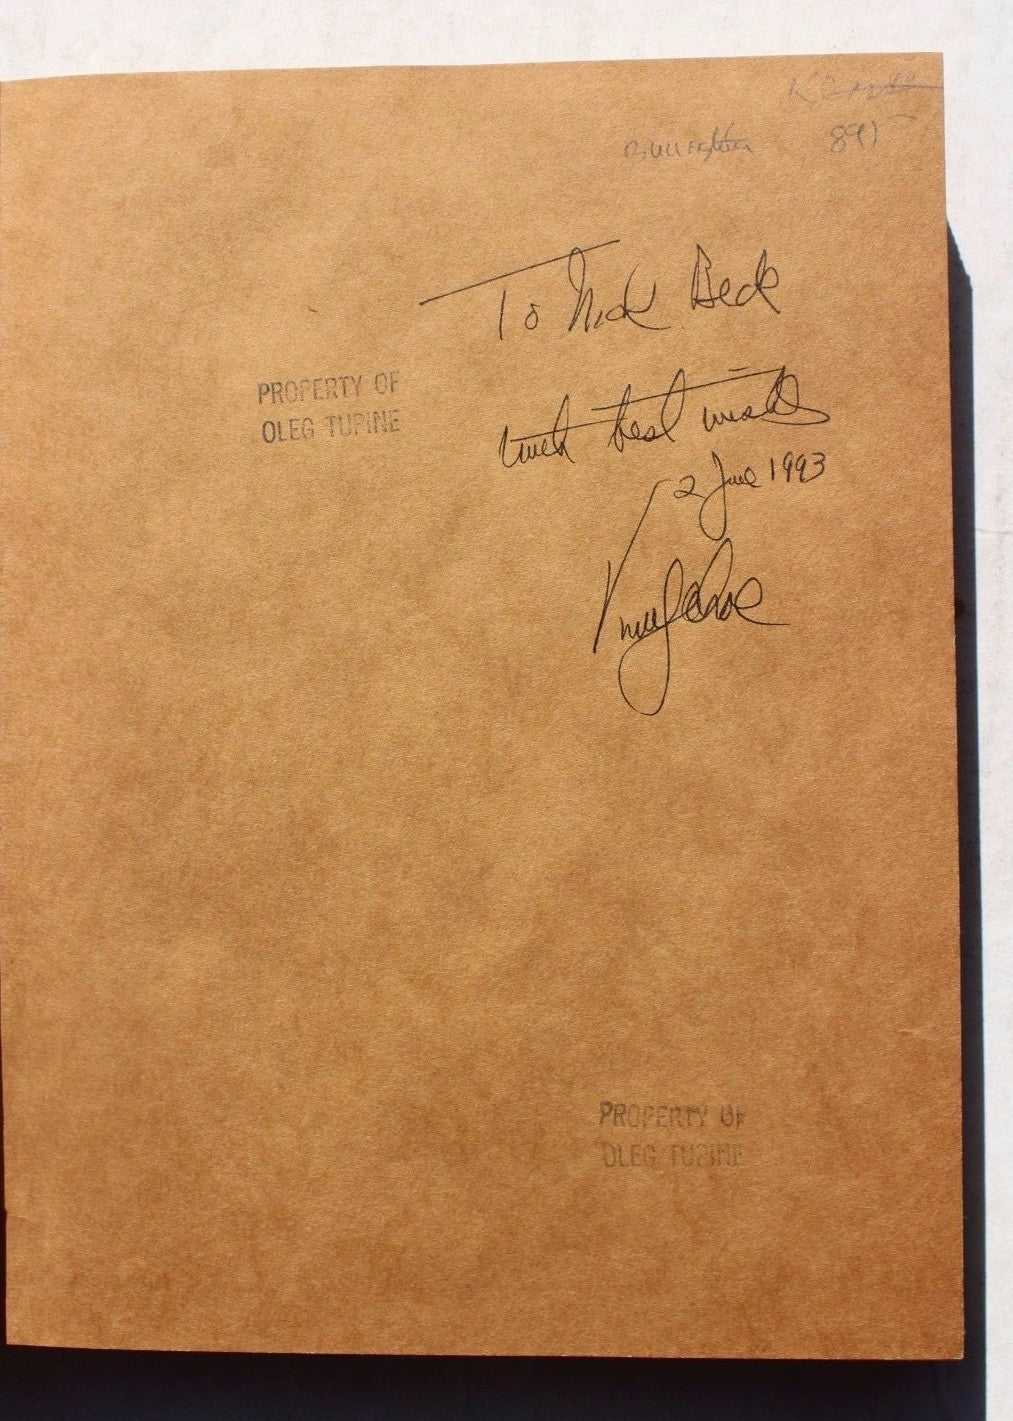 Bullfighter
To Nick Beck
PROPERTY OF
OLEG TUPINE
with best wishes
2 June 1993
PROPERTY OF
OLEG TUPINE